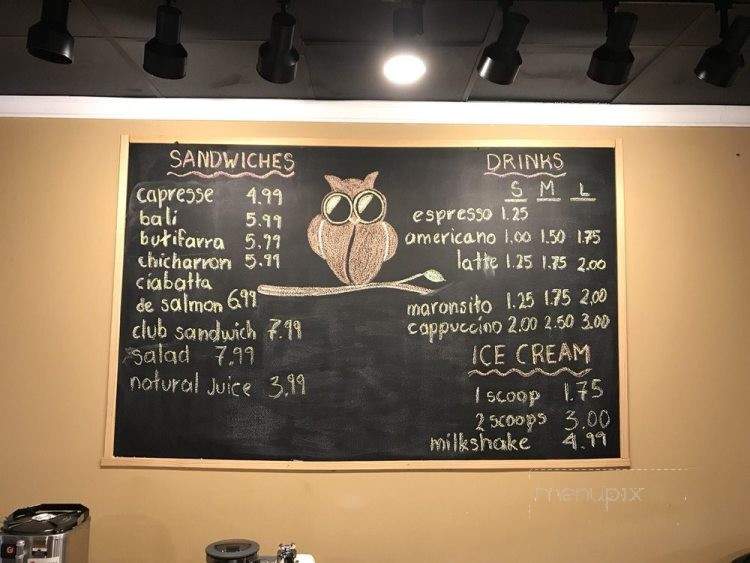 SANDWICHES
capresse 4.99
bali 5.99
butifarra 5.99
chicharron 5.99
ciabatta
de salmon 6.99
club sandwich 7.99
salad 7.99
natural Juice 3.99
DRINKS
S M L
espresso 1.25
americano 1.00 1.50 1.75
latte 1.25 1.75 2.00
maronsito 1.25 1.75 2.00
cappuccino 2.00 2.50 3.00
ICE CREAM
1 scoop 1.75
2 scoops 3.00
milkshake 4.99
menupix